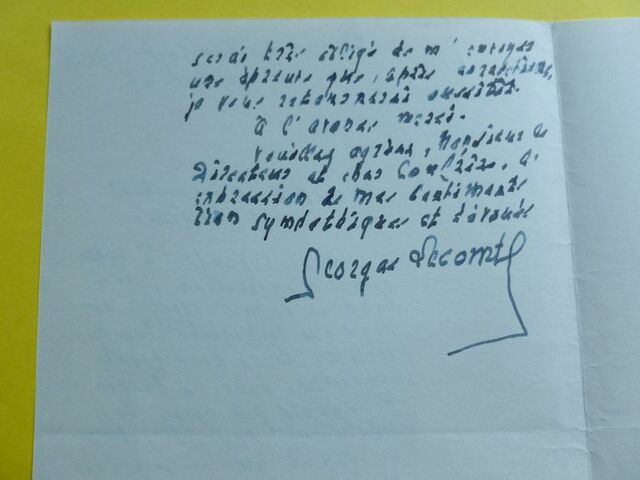 serai très obligé de m'envoyer
une épreuve que, après corrections,
je vous retournerai aussitôt.
À l'avance merci.
Veuillez agréer, Monsieur le
Directeur et cher Confrère, l'
expression de mes sentiments
bien sympathiques et dévoués
Georges Lecomte